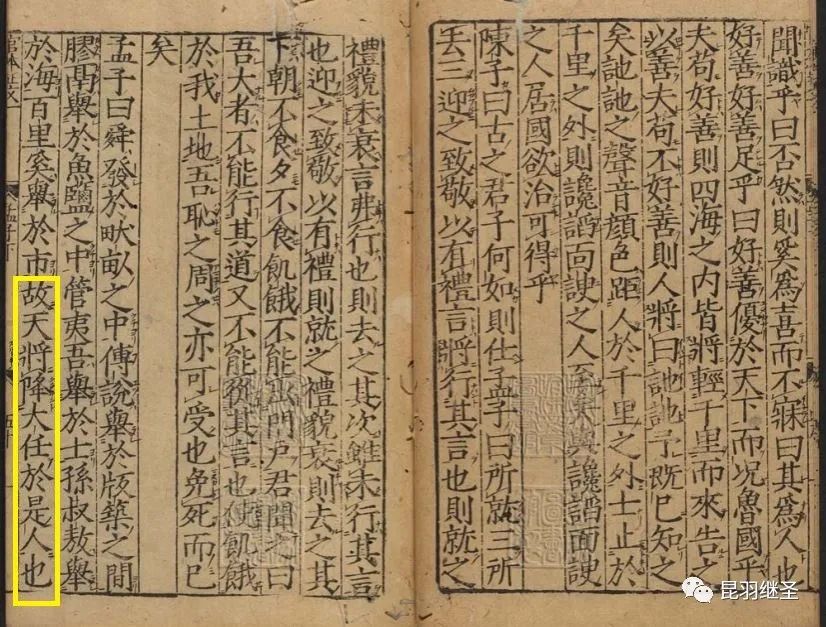 聞識乎曰否然則奚爲喜而不寐曰其爲人也
好善好善足乎曰好善優於天下而况魯國乎
夫苟好善則四海之内皆將輕千里而來告之
以善夫苟不好善則人將曰訑訑予旣已知之
矣訑訑之聲音顔色距人於千里之外士止於
千里之外則讒謟面諛之人至矣與讒謟面諛
之人居國欲治可得乎
陳子曰古之君子何如則仕孟子曰所就三所
去三迎之致敬以有禮言將行其言也則就之
禮貌未衰言弗行也則去之其次雖未行其言
也迎之致敬以有禮則就之禮貌衰則去之其
下朝不食夕不食飢餓不能出門戶君聞之曰
吾大者不能行其道又不能從其言也使飢餓
於我土地吾恥之周之亦可受也免死而已
矣
孟子曰舜發於畎畝之中傅說舉於版築之間
膠鬲舉於魚鹽之中管夷吾舉於士孫叔敖舉
於海百里奚舉於市故天將降大任於是人也
孟子下
五十
昆羽继圣